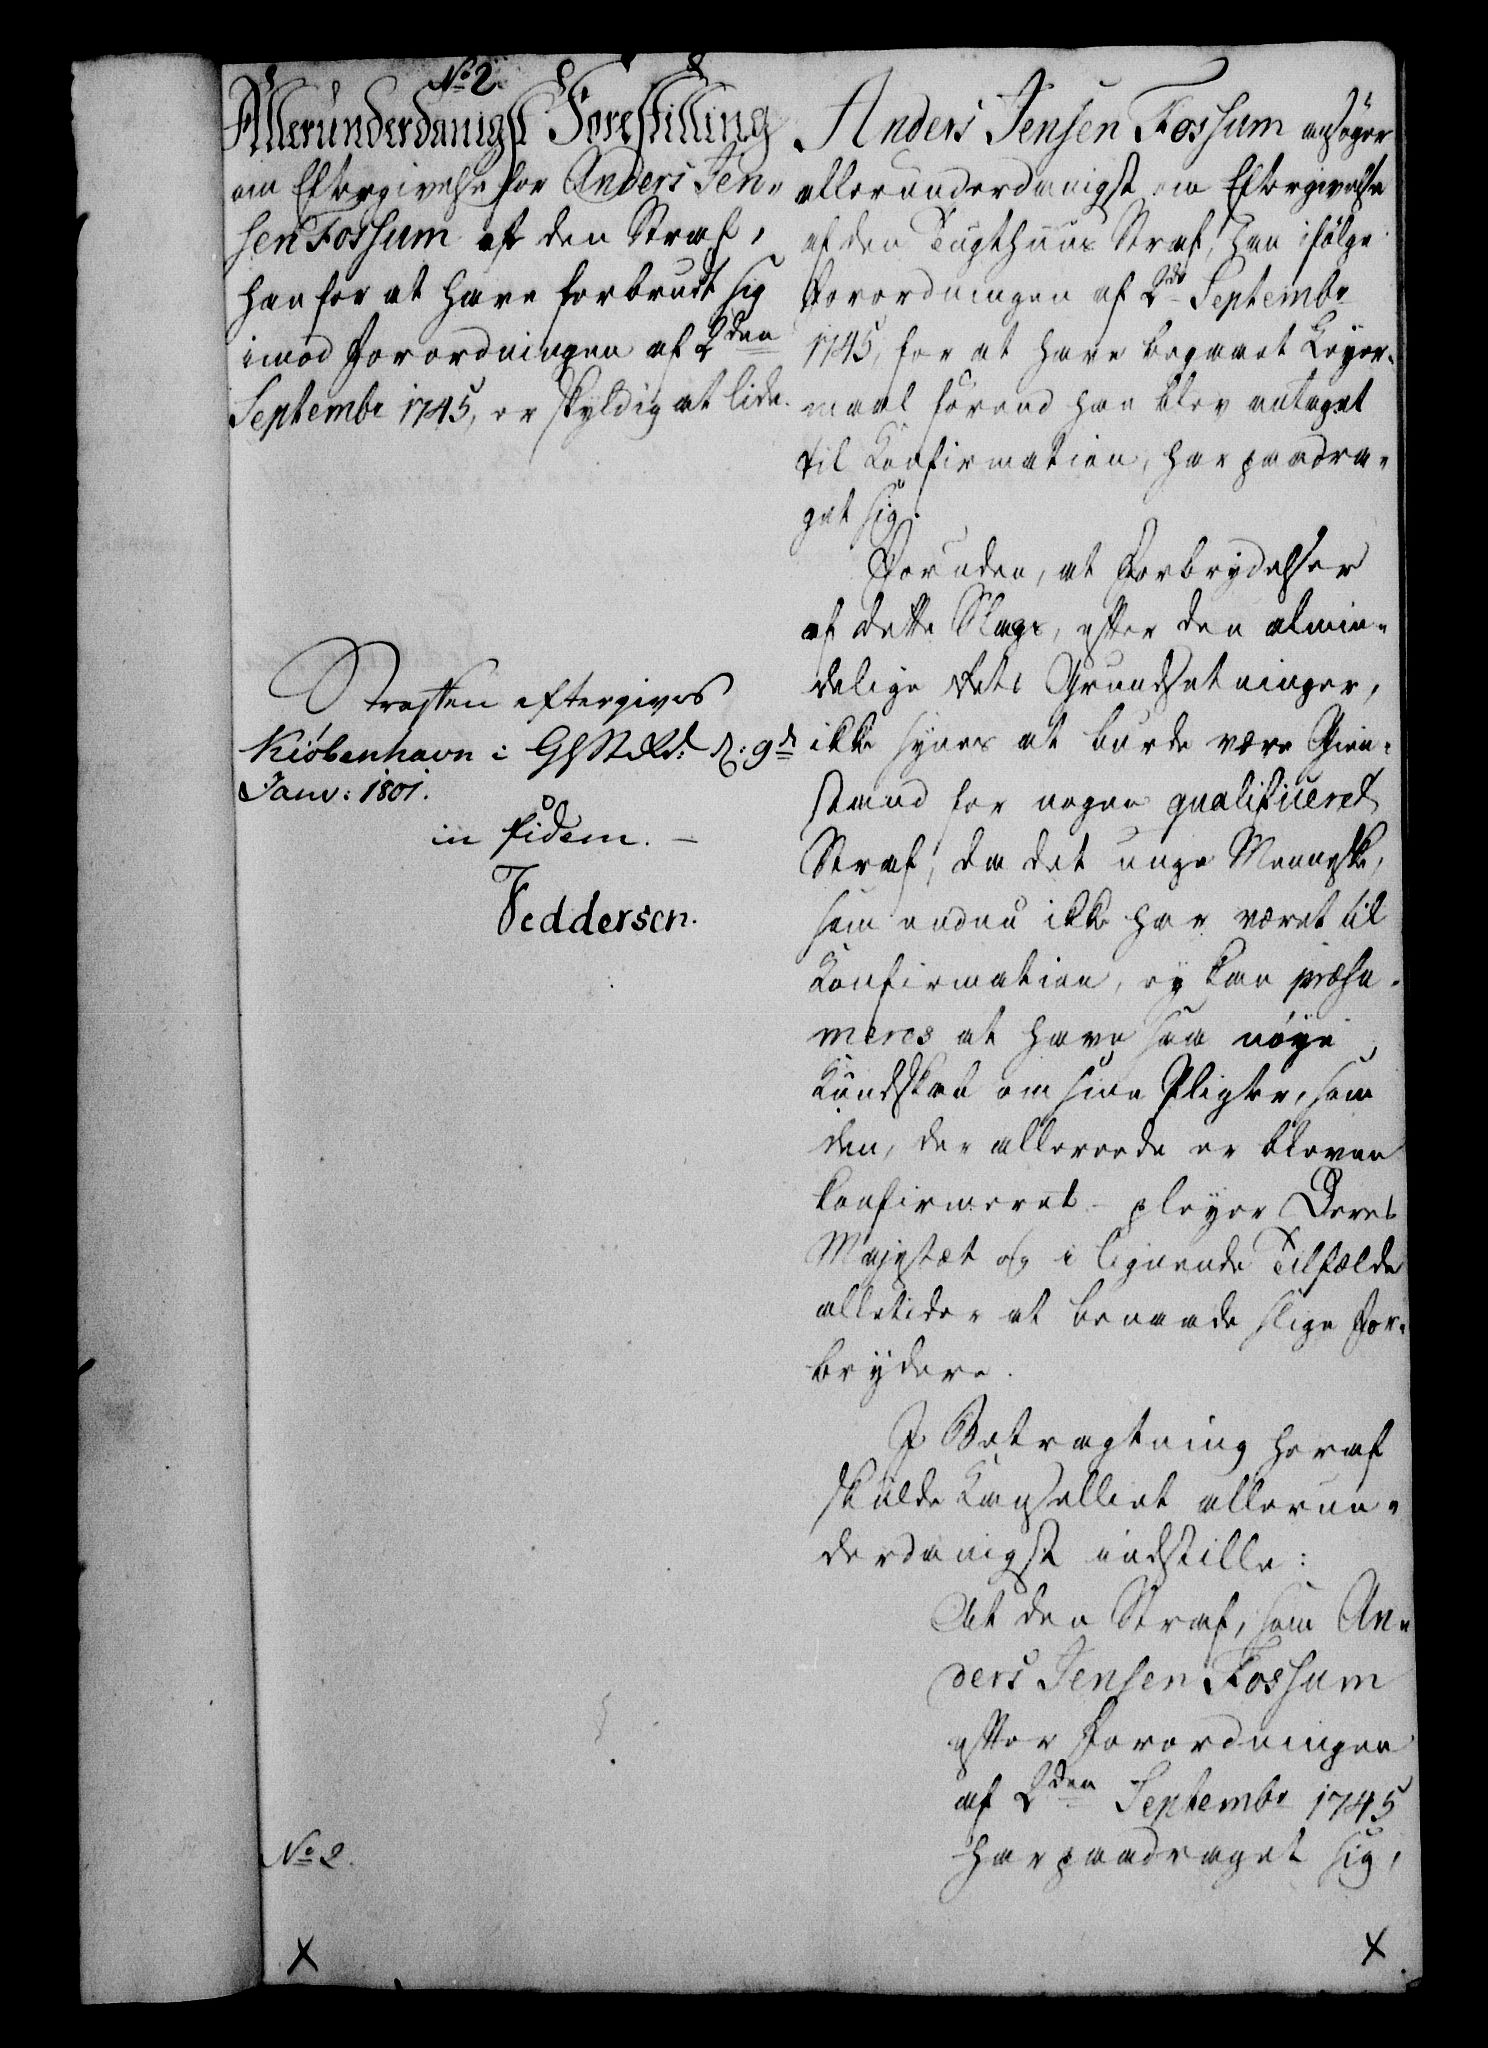 No 2.
Allerunderdanigst Forestilling
om Eftergivelse for Anders Jen-
sen Fossum af den Straf,
han for at have forbrudt sig
imod Forordningen af 2den
Septembr 1745, er skyldig at lide.
Straffen eftergives
Kiöbenhavn i d: 9d
Janv: 1801.
in fidem. –
Feddersen.
No 2.
Anders Jensen Fossum ansøger
allerunderdanigst om Eftergivelse
af den Tugthuus Straf, han ifølge
Forordningen af 2den Septembr
1745, for at have begaaet Leyer-
maal førend han blev antaget
til Confirmation, har paadra-
get sig.
Foruden, at Forbrydelser
af dette Slags, efter den almin-
delige Rets Grundsetninger,
ikke synes at burde være Gien-
stand for nogen qualificeret
Straf, da det unge Menneske,
som endnu ikke har været til
Confirmation, ey kan præsu-
meres at have saa nøye
Kundskab om sine Pligter, som
den, der allereede er bleven
confirmeret – pleyer Deres
Majestæt og i lignende Tilfælde
alletider at benaade slige For-
brydere.
I Betragtning heraf
skulde Cancelliet allerun-
derdanigst indstille:
At den Straf, som An-
ders Jensen Fossum
efter Forordningen
af 2den Septembr 1745
har paadraget sig,